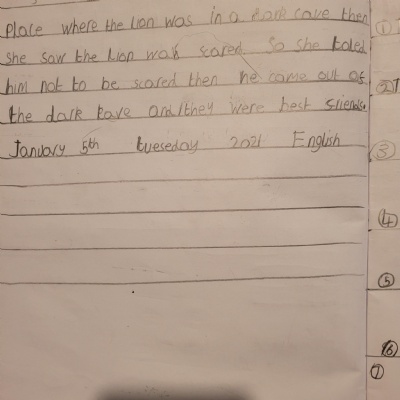 place where the lion was in a dark cave then
she saw the lion was scared. So she toled
him not to be scared then he came out of
the dark kave and they were best friends.
January 5th tueseday 2021 English
1
2
3
4
5
6
7